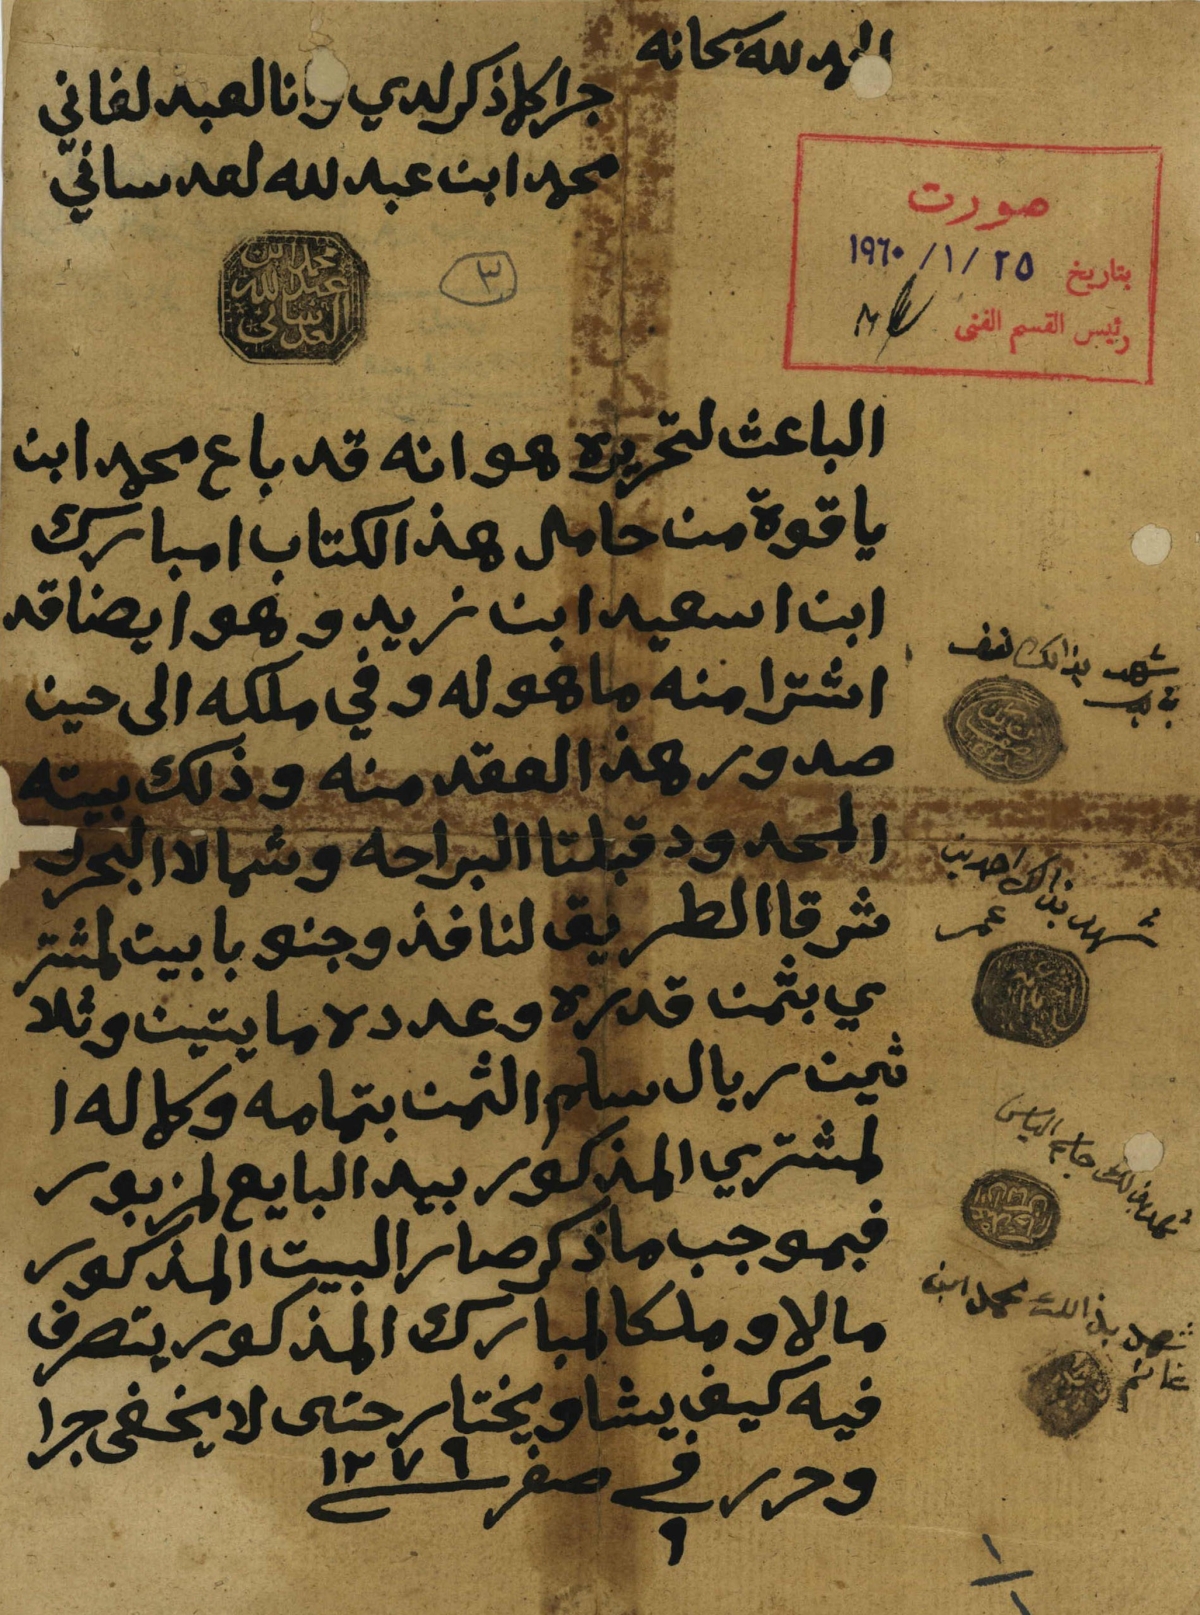 الحمد لله سبحانه
جرا كلما ذكر لدي وانا العبد لفاني
محمد ابن عبد لله لعدساني
محمد ابن
عبد الله
العدساني
٣
صورت
بتاريخ ٢٥ /١ /١٩٦٠
رئيس القسم الفنى
الباعث لتحريره هو انه قد باع محمد ابن
ياقوة من حامل هذ الكتاب امبارك
ابن اسعيد ابن زيد وهو ايضا قد
اشترا منه ما هو له وفي ملكه الى حين
صدور هذ العقد منه وذلك بيته
المحدود قبلتا البراحه وشمالا البحر
شرقا الطريق لنافذ وجنوبا بيت لمشتر
ي بثمن قدره وعدده مايتين وثلا
ثين ريال سلم الثمن بتمامه وكماله ا
لمشتري المذكور بيد البايع لمزبور
فبموجب ما ذكر صار البيت المذكور
مالا وملكا لمبارك المذكور يتصرف
فيه كيف يشا ويختار حتى لا يخفى جرا
وحرر في ٩ صفر ١٢٧٩
شهد بذالك
شهد بذالك احمد بن
عمر
شهد بذالك جاسم
شهد بذالك محمد ابن
غانم
١
١